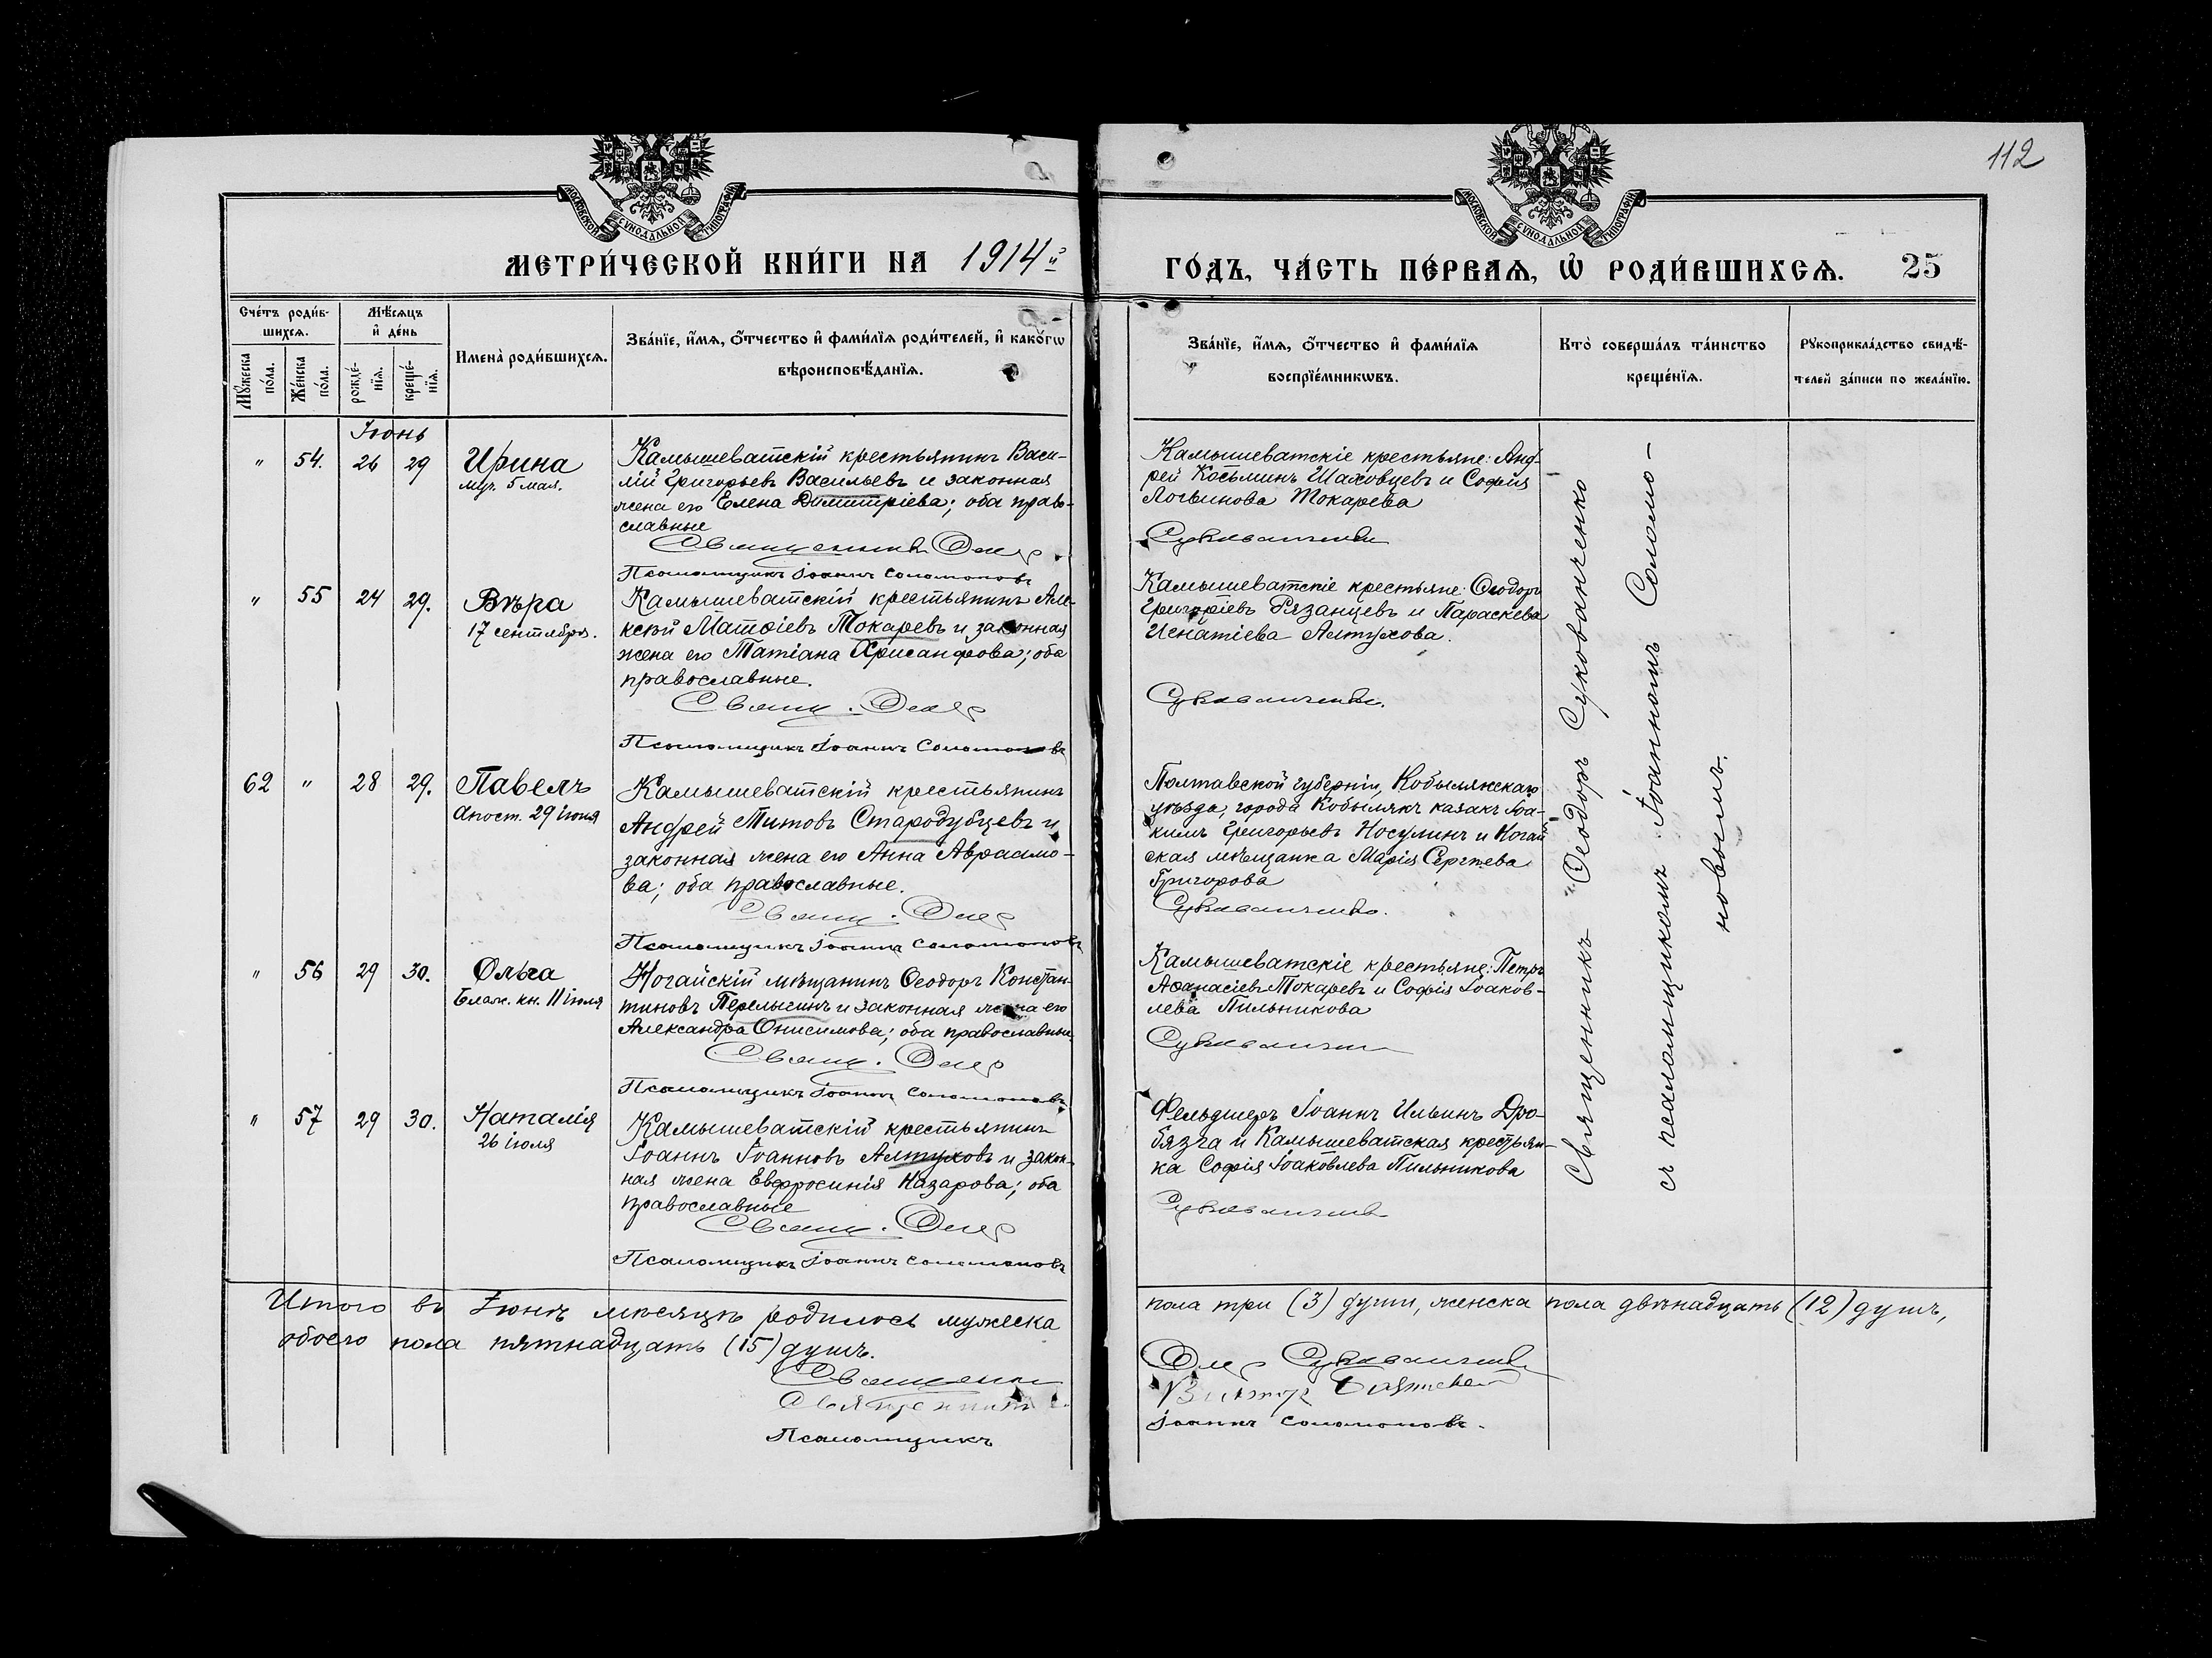 112
МОСКОВСКОЙ СѴНОДАЛЬНОЙ ТИПОГРАФІИ
МОСКОВСКОЙ СѴНОДАЛЬНОЙ ТИПОГРАФІИ
МЕТРИ́ЧЕСКОЙ КНИ́ГИ НА 1914й
ГО́ДЪ, ЧА́СТЬ ПЕ́РВАѦ, Ѡ҆ РОДИ́ВШИХСѦ. 25
Сче́тъ роди́в-
шихсѧ.
Мꙋ́жеска по́ла.
Же́нска по́ла.
Мѣ́сѧцъ
и҆ де́нь
рожде́-
нїѧ.
креще́-
нїѧ.
Имена̀ роди́вшихсѧ.
Зва́нїе, и҆́мѧ, ѻ҆́тчество и҆ фами́лїѧ роди́телей, и҆ како́гѡ
вѣроисповѣ́данїѧ.
Зва́нїе, и҆́мѧ, ѻ҆́тчество и҆ фами́лїѧ
воспрїе́мникѡвъ.
Кто̀ соверша́лъ та́инство
креще́нїѧ.
Рꙋкоприкла́дство свидѣ́-
телей за́писи по жела́нїю.
Іюнь
" 54. 26 29 Ирина
муч. 5 мая.
Камышеватскій крестьянинъ Васи-
лій Григорьевъ Васильевъ и законная
жена его Елена Димитріева; оба право-
славные
Священникъ Ѳеод
Псаломщикъ Іоаннъ Соломоновъ
Камышеватскіе крестьяне: Анд-
рей Косьминъ Шаховцевъ и Софія
Логвинова Токарева
Сукованченко
" 55 24 29. Вѣра
17 сентября.
Камышеватскій крестьянинъ Але-
ксѣй Матѳіевъ Токаревъ и законная
жена его Татіана Хрисанфова; оба
православные.
Свящ. Ѳеод
Псаломщикъ Іоаннъ Соломоновъ
Камышеватскіе крестьяне: Ѳеодоръ
Григоріевъ Рязанцевъ и Параскева
Игнатіева Алтухова.
Сукованченко.
62 " 28 29. Павелъ
Апост. 29 іюня
Камышеватскій крестьянинъ
Андрей Титовъ Стародубцевъ и
законная жена его Анна Авраамо-
ва; оба православные.
Свящ. Ѳеод
Псаломщикъ Іоаннъ Соломоновъ
Полтавской губерніи, Кобылянскаго
уѣзда, города Кобылякъ казакъ Іоа-
кимъ Григорьевъ Носулинъ и Ногай
ская мѣщанка Марія Сергѣева
Григорова
Сукованченко.
" 56 29 30. Ольга
Благ. кн. 11 іюля
Ногайскій мѣщанинъ Ѳеодоръ Констан-
тиновъ Перелыгинъ и законная жена его
Александра Онисимова; оба православные.
Свящ. Ѳеод
Псаломщикъ Іоаннъ Соломоновъ
Камышеватскіе крестьяне: Петръ
Аѳанасіевъ Токаревъ и Софія Іоаков-
лева Пильникова
Сукованченко
" 57 29 30. Наталія
26 іюля
Камышеватскій крестьянинъ
Іоаннъ Іоанновъ Алтуховъ и закон-
ная жена Евфросинія Назарова; оба
православные
Свящ. Ѳеод
Псаломщикъ Іоаннъ Соломоновъ
Фельдшеръ Іоаннъ Ильинъ Дро-
бязга и Камышеватская крестьян-
ка Софія Іоаковлева Пильникова
Сукованченко
Священникъ Ѳеодоръ Сукованченко
съ псаломщикомъ Іоанномъ Соломо-
новымъ.
Итого въ Іюнѣ мѣсяцѣ родилось мужеска
пола три (3) души, женска пола двѣнадцать (12) душъ,
обоего пола пятнадцать (15) душъ.
Священник Ѳеод Сукованченко
Священникъ Викторъ
Псаломщикъ Іоаннъ Соломоновъ.